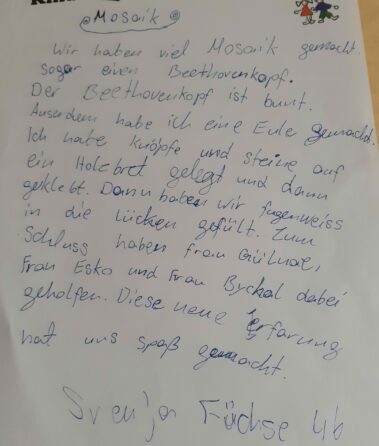 Mosaik
Wir haben viel Mosaik gemacht.
sogar einen Beethovenkopf.
Der Beethovenkopf ist bunt.
Auserdem habe ich eine Eule gemacht.
Ich habe knöpfe und steine auf
ein Holzbret gelegt und dann
geklebt. Dann haben wir fugenweiss
in die lücken gefült. Zum
Schluss haben frau
Frau Esko und Frau dabei
geholfen. Diese neue erfarung
hat uns spaß gemacht.
Svenja Füchse 4b